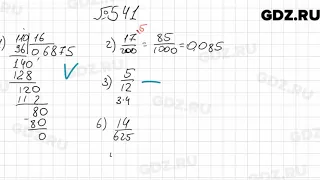 GDZ.RU
№541
1) 110 16
96 0,06875
140
128
120
112
80
80
0
2) 17/200 ·5 = 85/1000 = 0,085
3) 5/12 —
3·4
6) 14/625
GDZ.RU
GDZ.RU
GDZ.RU
GDZ.RU